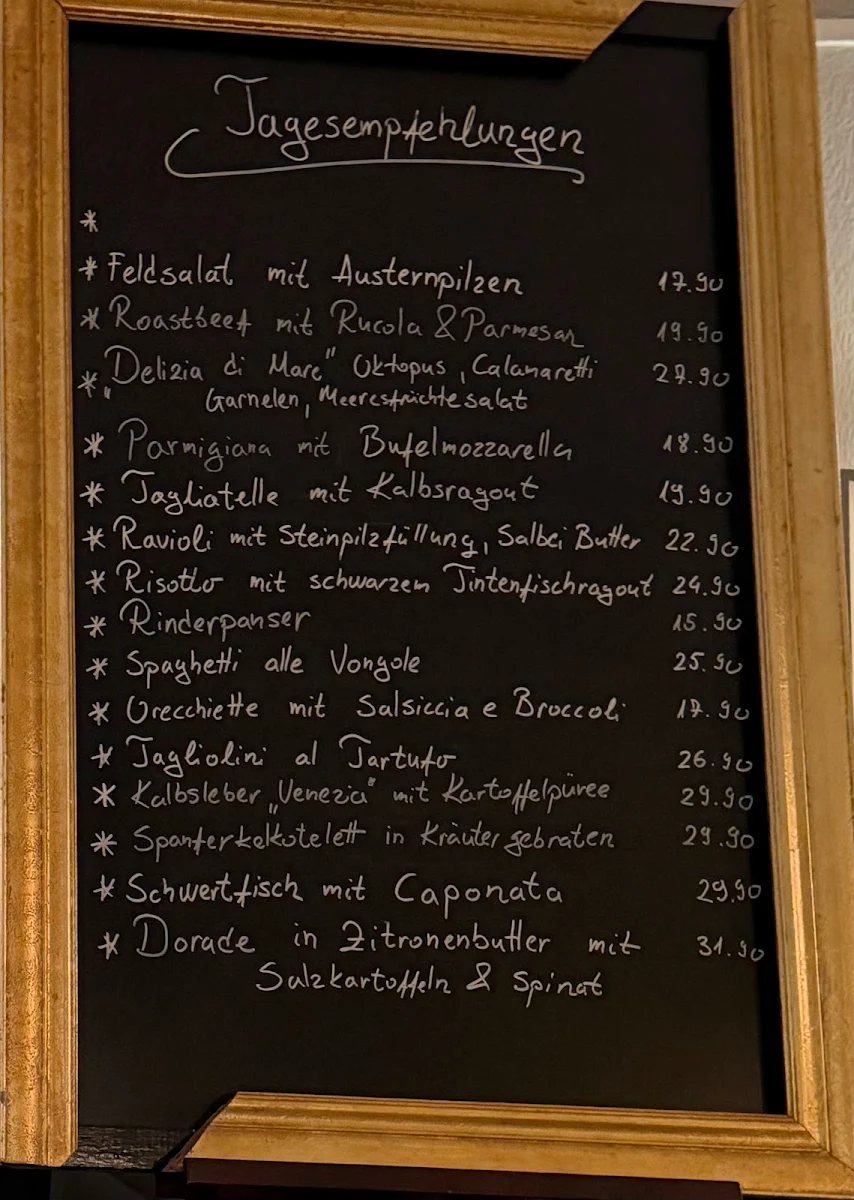 Tagesempfehlungen
*
* Feldsalat mit Austernpilzen 17.90
* Roastbeef mit Rucola & Parmesan 19.90
* "Delizia di Mare" Oktopus, Calamaretti 27.90
Garnelen, Meeresfrüchtesalat
* Parmigiana mit Bufelmozzarella 18.90
* Tagliatelle mit Kalbsragout 19.90
* Ravioli mit Steinpilzfüllung, Salbei Butter 22.90
* Risotto mit schwarzem Tintenfischragout 24.90
* Rinderpanser 15.90
* Spaghetti alle Vongole 25.90
* Orecchiette mit Salsiccia e Broccoli 17.90
* Tagliolini al Tartufo 26.90
* Kalbsleber „Venezia" mit Kartoffelpüree 29.90
* Spanferkelkotelett in Kräuter gebraten 29.90
* Schwertfisch mit Caponata 29.90
* Dorade in Zitronenbutter mit 31.90
Salzkartoffeln & Spinat